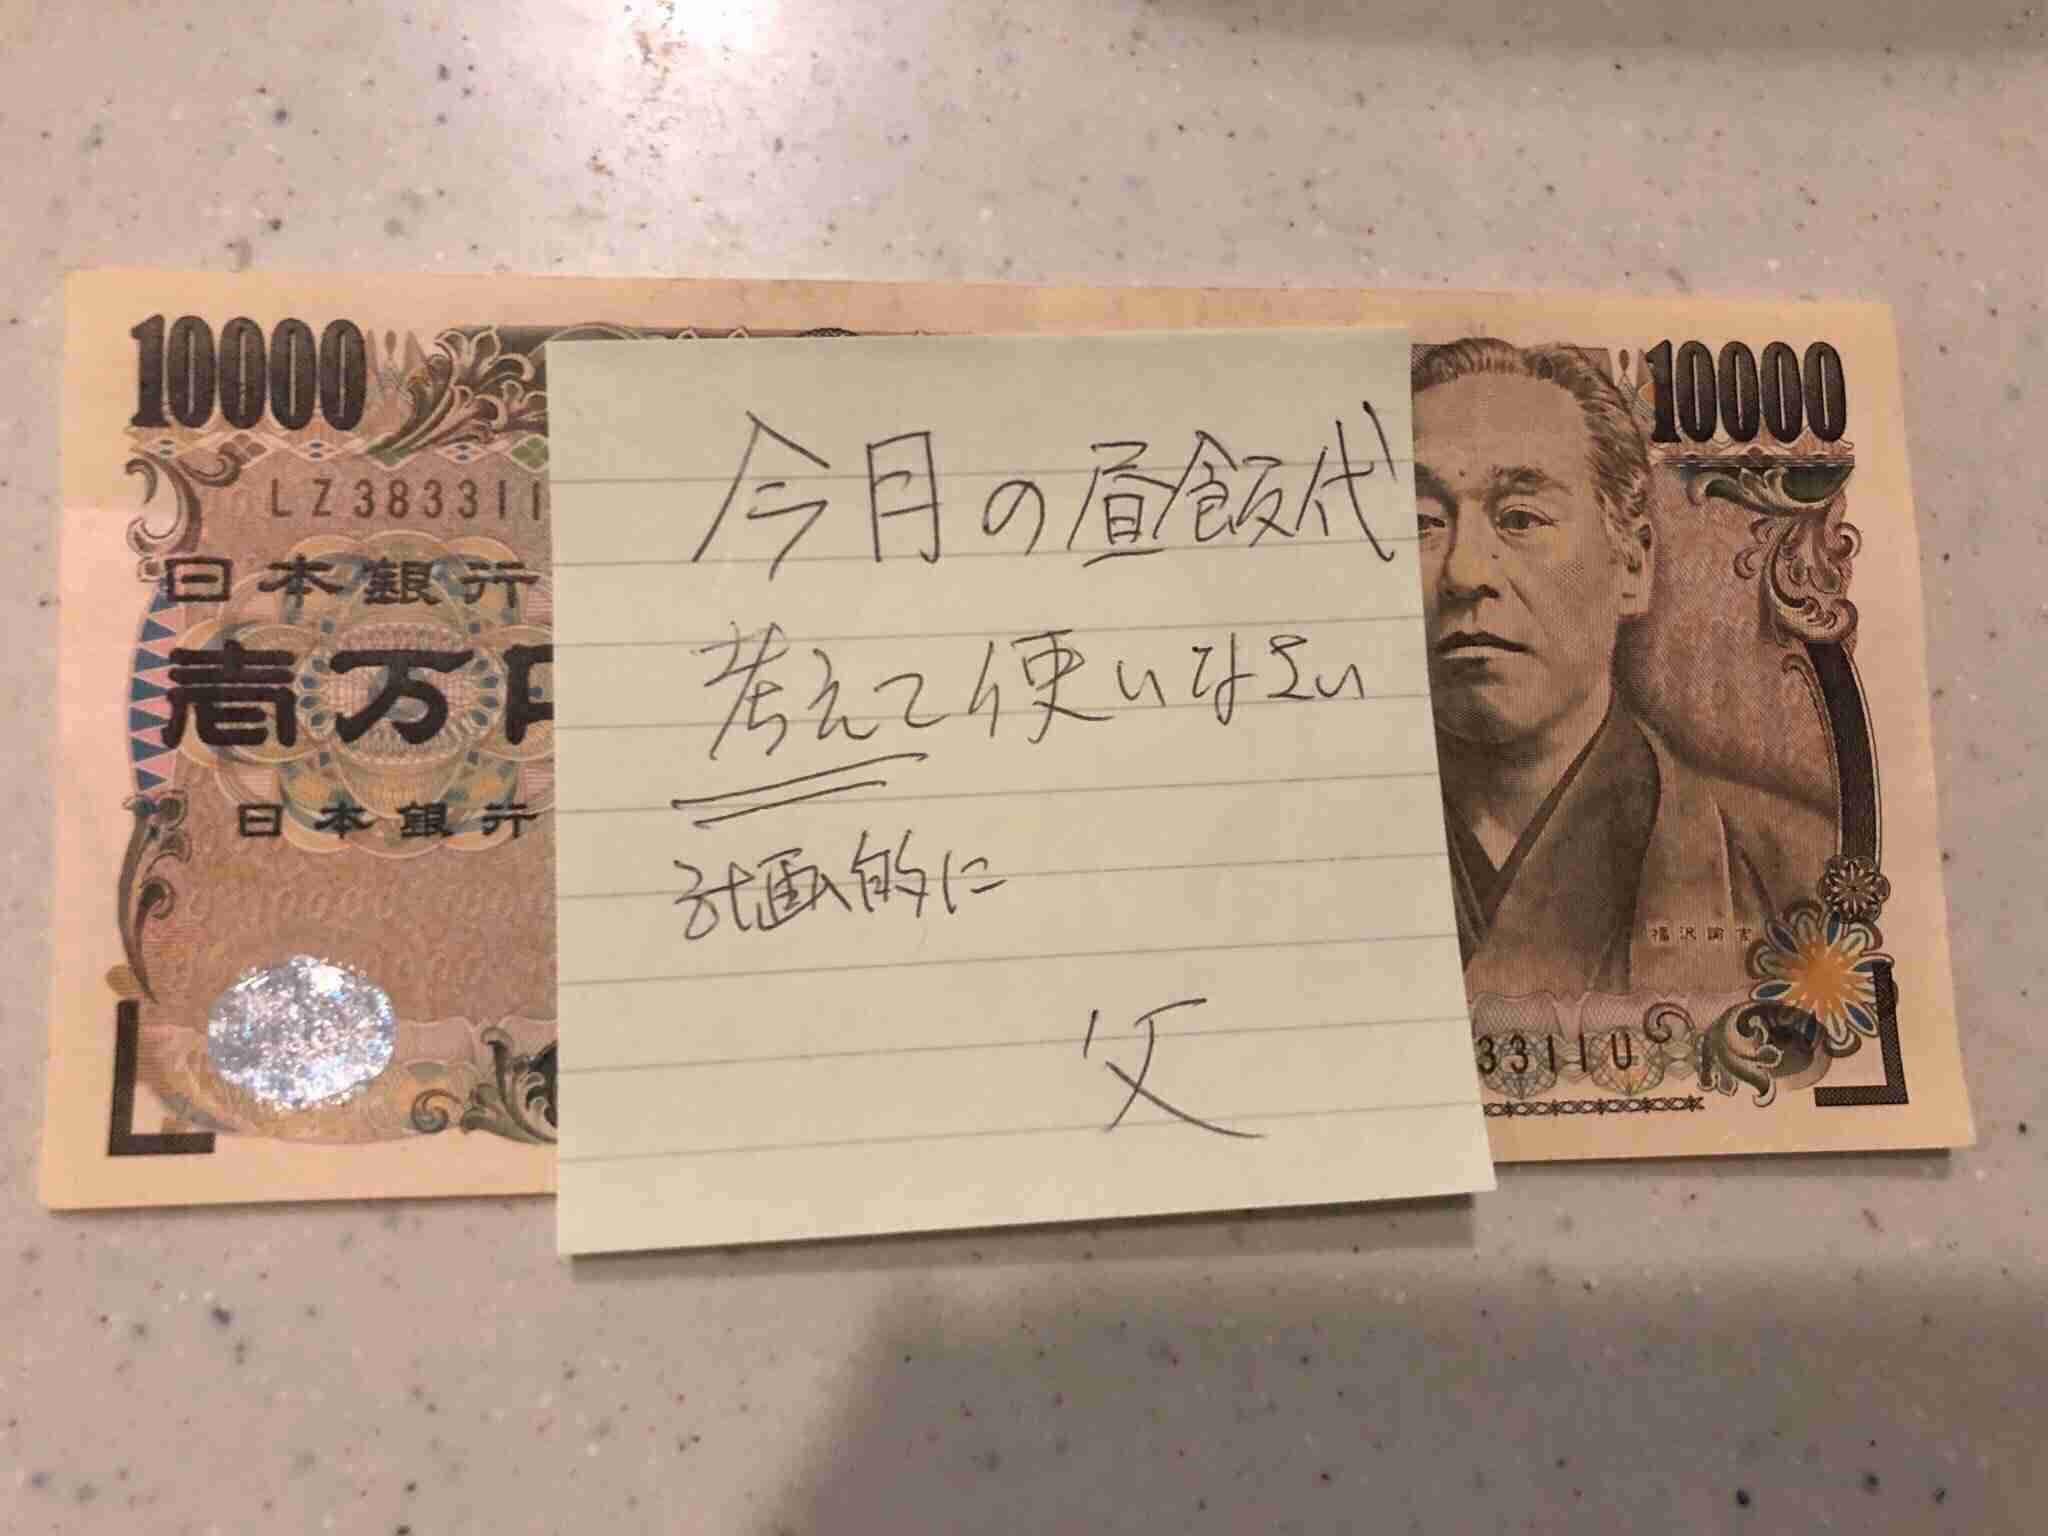 10000
10000
LZ383311
日本銀行
壱万
日本銀行
今月の昼飯代
考えて使いなさい
計画的に
父
福沢諭吉
33311U